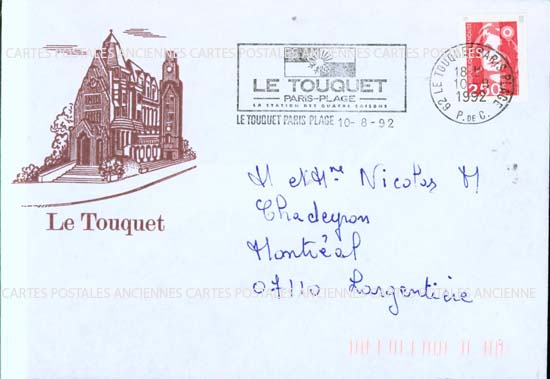 CARTES POSTALES ANCIENNES CARTES POSTALES ANCIENNES CARTES POSTALES ANCIENNES
LE TOUQUET
PARIS-PLAGE
LA STATION DES QUATRE SAISONS
LE TOUQUET PARIS PLAGE 10-8-92
62 LE TOUQUET PARIS PLAGE
18 H
10 -8
1992
P. DE C.
2,50
Le Touquet
M et Mme Nicolas M
Chadeyron
Montréal
07110 Largentière
CARTES POSTALES ANCIENNES CARTES POSTALES ANCIENNES CARTES POSTALES ANCIENNE